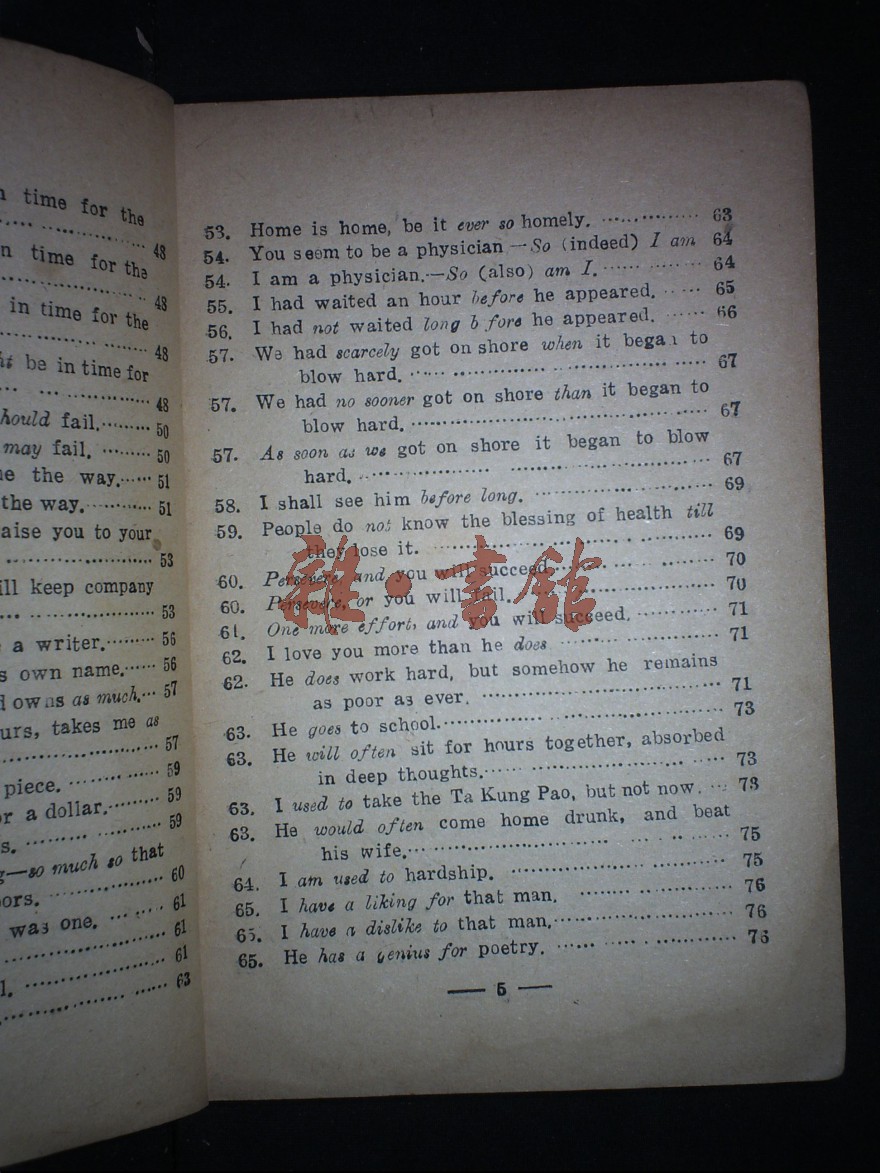 time for the
48
n time for the
48
in time for the
48
be in time for
48
hould fail.········· 50
may fail. ········· 50
e the way.······ 51
the way.············ 51
aise you to your
53
ill keep company
53
a writer.········· 56
s own name.······ 56
d owns as much.··· 57
urs, takes me as
57
piece. ··············· 59
r a dollar.········· 59
s. ····················· 59
g—so much so that
oors. ·················· 60
was one. ········· 61
61
l. ····················· 61
63
53. Home is home, be it ever so homely. ··············· 63
54. You seem to be a physician—So (indeed) I am 64
54. I am a physician.—So (also) am I. ··············· 64
55. I had waited an hour before he appeared. ······ 65
56. I had not waited long b fore he appeared. ······ 66
57. We had scarcely got on shore when it began to
blow hard. ·································· 67
57. We had no sooner got on shore than it began to
blow hard. ·································· 67
57. As soon as we got on shore it began to blow
hard. ·································· 67
58. I shall see him before long. ··················· 69
59. People do not know the blessing of health till
they lose it. ·························· 69
60. Persevere, and you will succeed. ············ 70
60. Persevere, or you will fail. ··················· 70
61. One more effort, and you will succeed. ········· 71
62. I love you more than he does ··············· 71
62. He does work hard, but somehow he remains
as poor as ever. ························ 71
63. He goes to school. ······························ 73
63. He will often sit for hours together, absorbed
in deep thoughts. ························ 73
63. I used to take the Ta Kung Pao, but not now. ··· 73
63. He would often come home drunk, and beat
his wife. ······························ 75
64. I am used to hardship. ························ 75
65. I have a liking for that man. ··············· 76
65. I have a dislike to that man. ··············· 76
65. He has a genius for poetry. ··············· 76
— 5 —
雜·書館